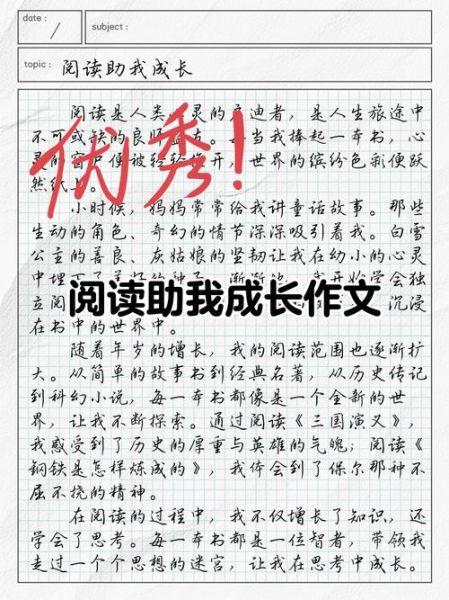 date : /
subject :
topic : 阅读助我成长
阅读是人类心灵的启迪者，是人生旅途中
不可或缺的良师益友。每当我捧起一本书，心
灵的窗户便被轻轻推开，世界的缤纷色彩便跃
然纸上。
优秀!
小时候，妈妈常常给我讲童话故事。那些
生动的角色、奇幻的情节深深吸引着我。白雪
公主的善良、灰姑娘的坚韧让我在幼小的心灵
中埋下了 渐渐 我开始学会独
立阅 沉浸
阅读助我成长作文
在书中的世界中。
随着年岁的增长，我的阅读范围也逐渐扩
大。从简单的故事书到经典名著，从历史传记
到科幻小说，每一本书都像是一个全新的世
界，让我不断探索。通过阅读《三国演义》，
我感受到了历史的厚重与英雄的气魄；阅读《
钢铁是怎样炼成的》，我体会到了保尔那种不
屈不挠的精神。
在阅读的过程中，我不仅增长了知识，还
学会了思考。每一本书都是一位智者，带领我
走过一个个思想的迷宫，让我在思考中成长。